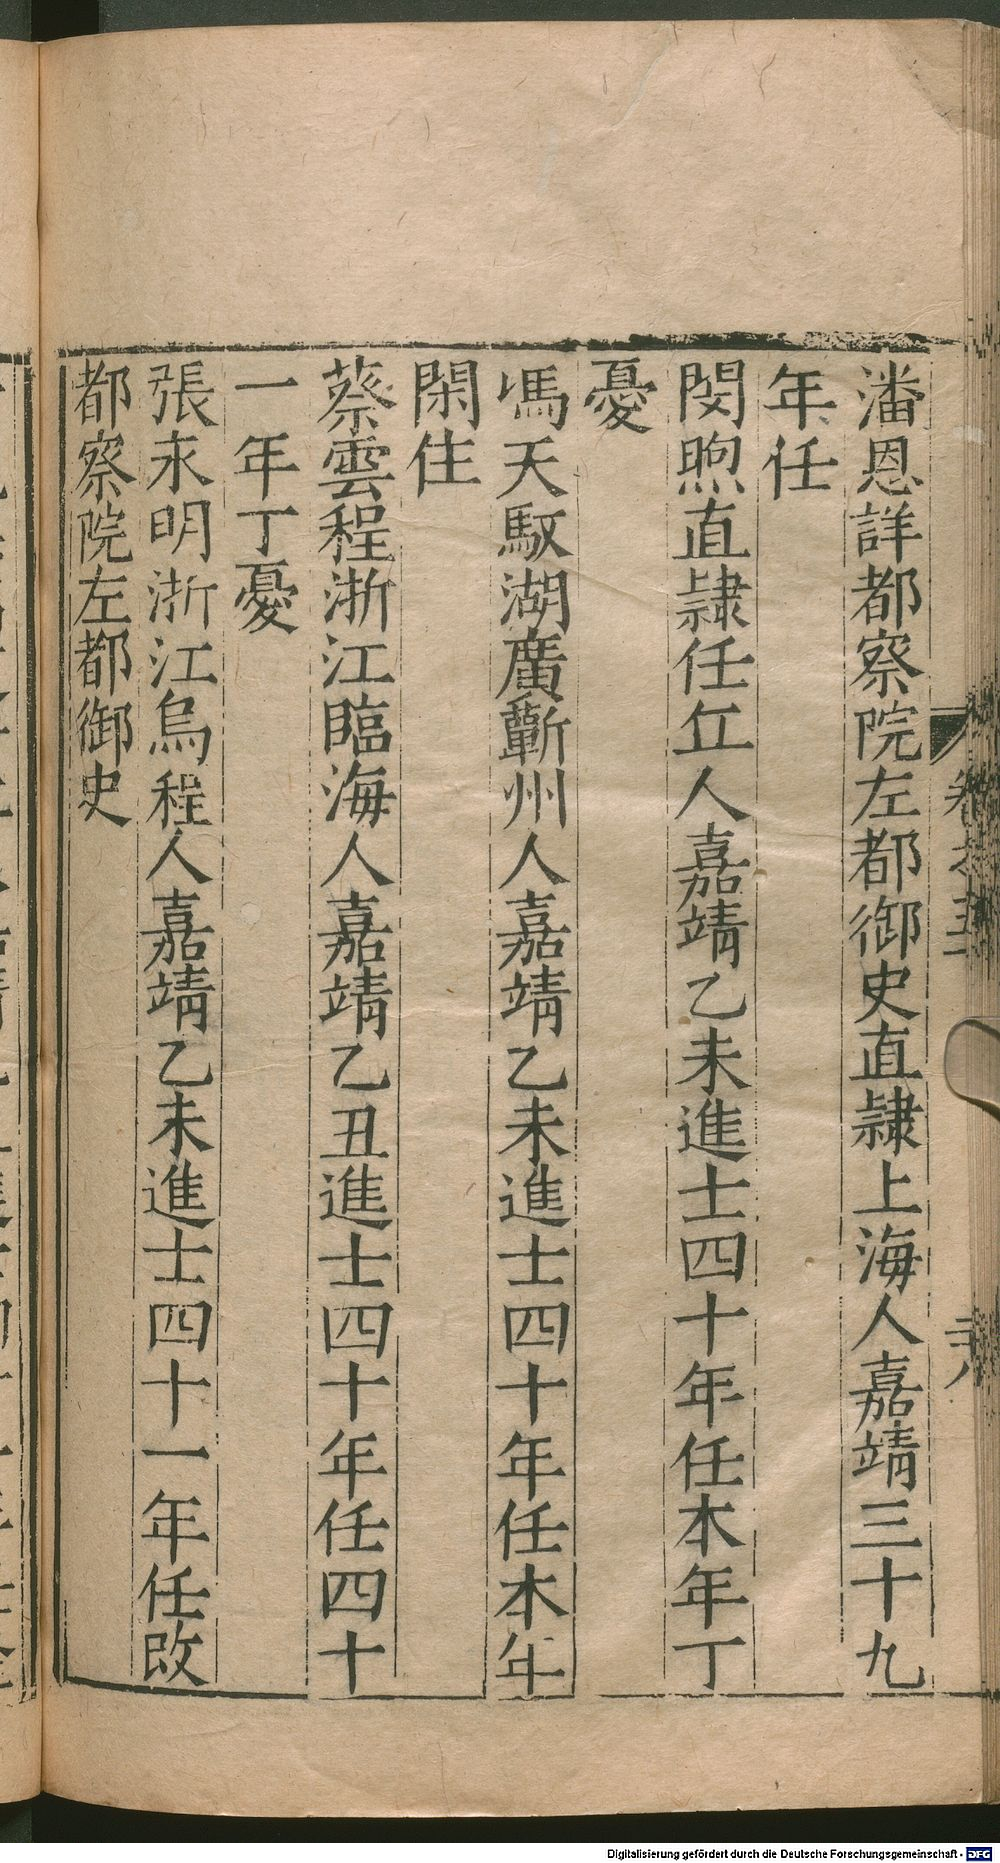 潘恩詳都察院左都御史直隸上海人嘉靖三十九
年任
閔煦直隸任丘人嘉靖乙未進士四十年任本年丁
憂
馮天馭湖廣蘄州人嘉靖乙未進士四十年任本年
閑住
蔡雲程浙江臨海人嘉靖乙丑進士四十年任四十
一年丁憂
張永明浙江烏程人嘉靖乙未進士四十一年任改
都察院左都御史
Digitalisierung gefördert durch die Deutsche Forschungsgemeinschaft - DFG